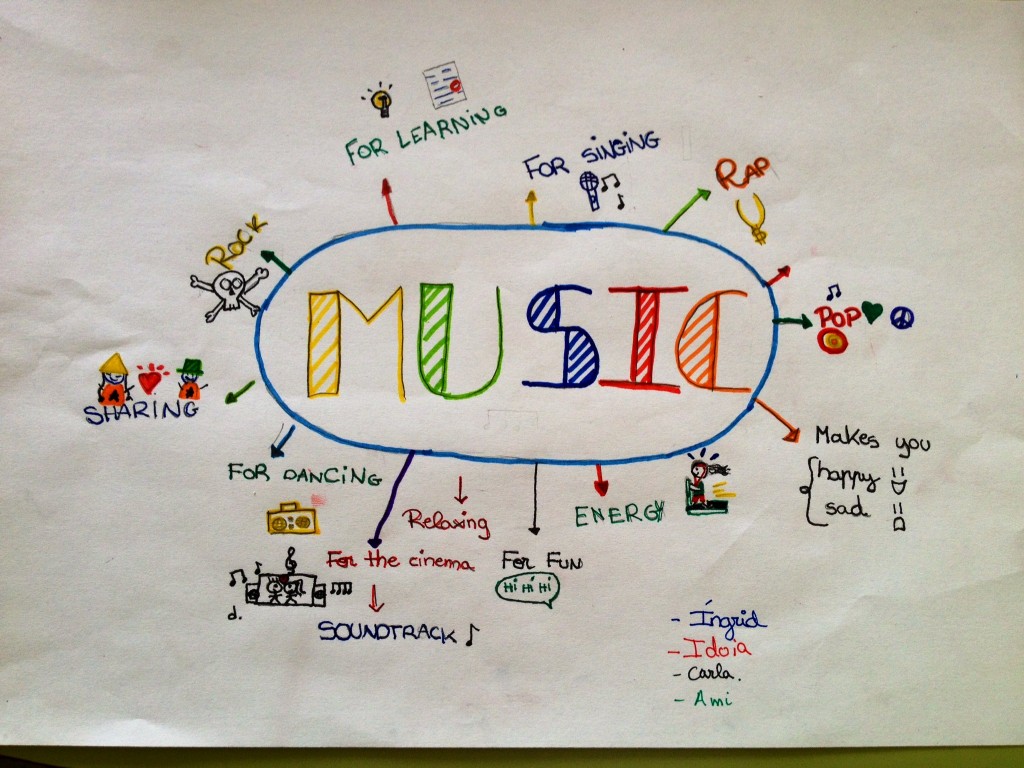 FOR LEARNING
FOR SINGING
RAP
ROCK
MUSIC
POP
SHARING
Makes you
happy
sad
FOR DANCING
Relaxing
ENERGY
For the cinema
FOR FUN
Hi Hi Hi
d.
SOUNDTRACK
- Íngrid
- Idoia
- Carla.
- Ami